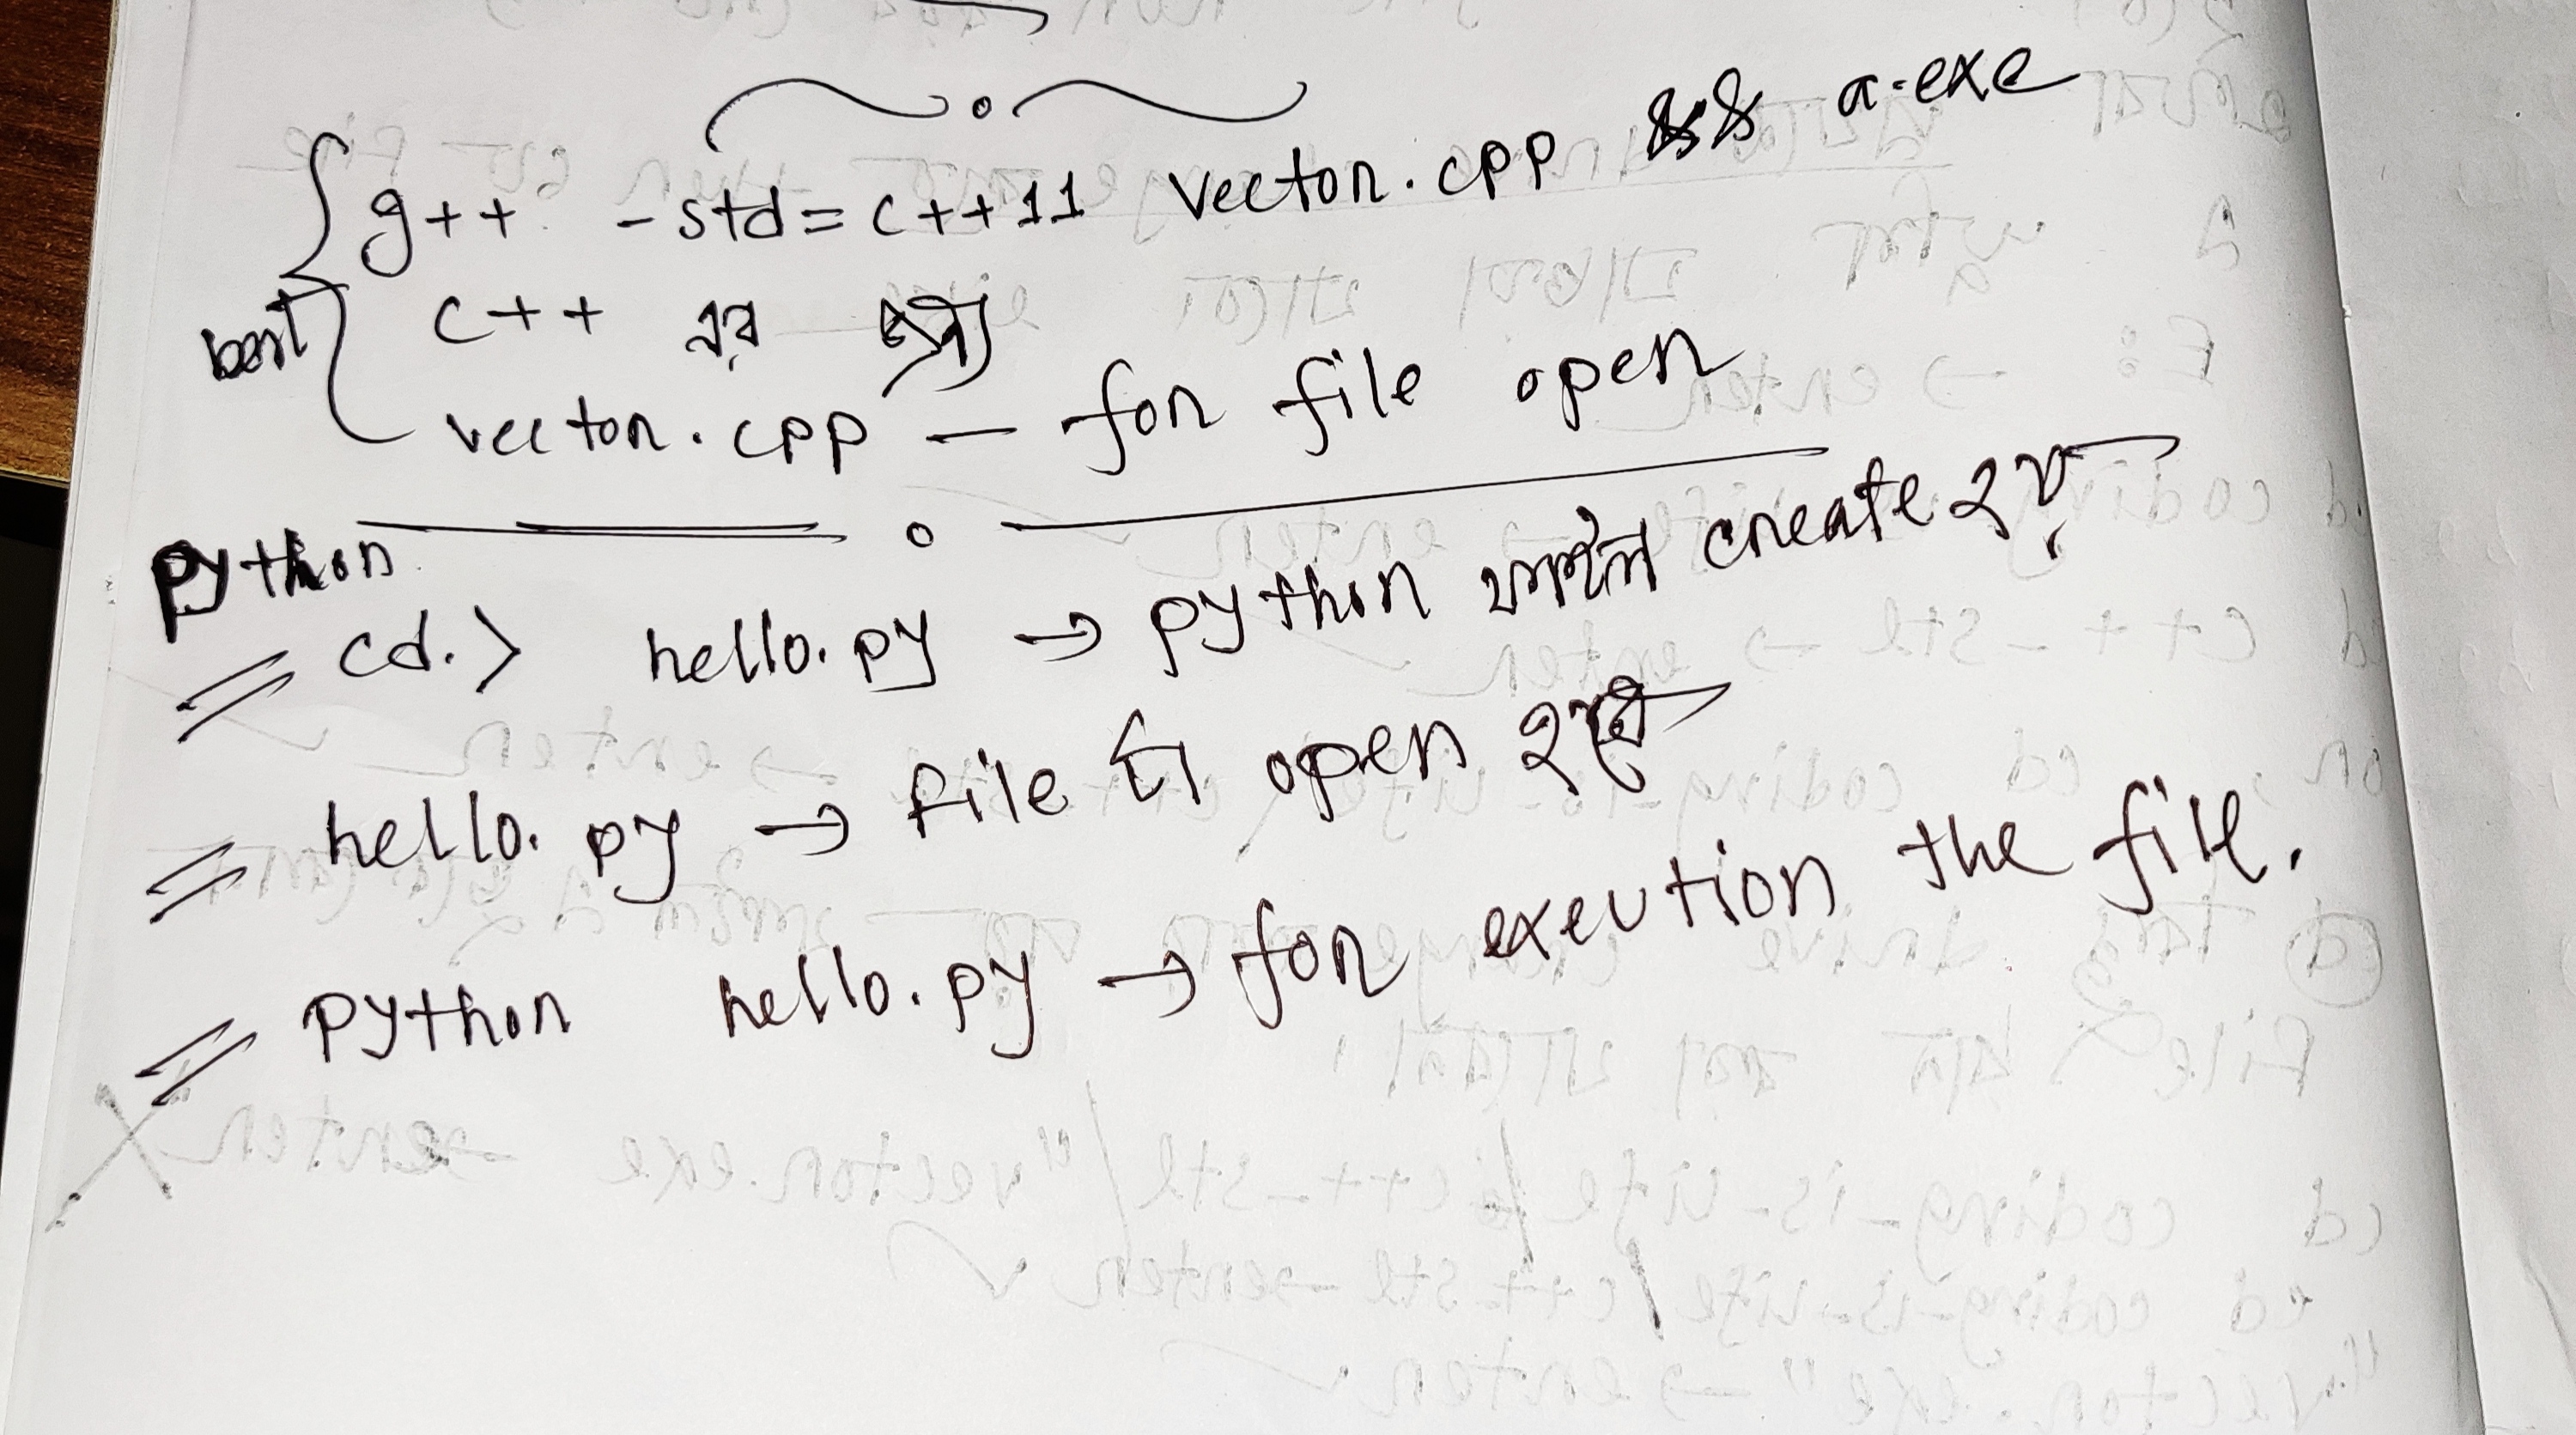 g++ -std=c++11 vector.cpp && a.exe
c++ এর জন্য
best
vector.cpp — for file open
python
cd.> hello.py → python ফাইল create হবে
hello.py → file টা open হবে
python hello.py → for exeution the file.